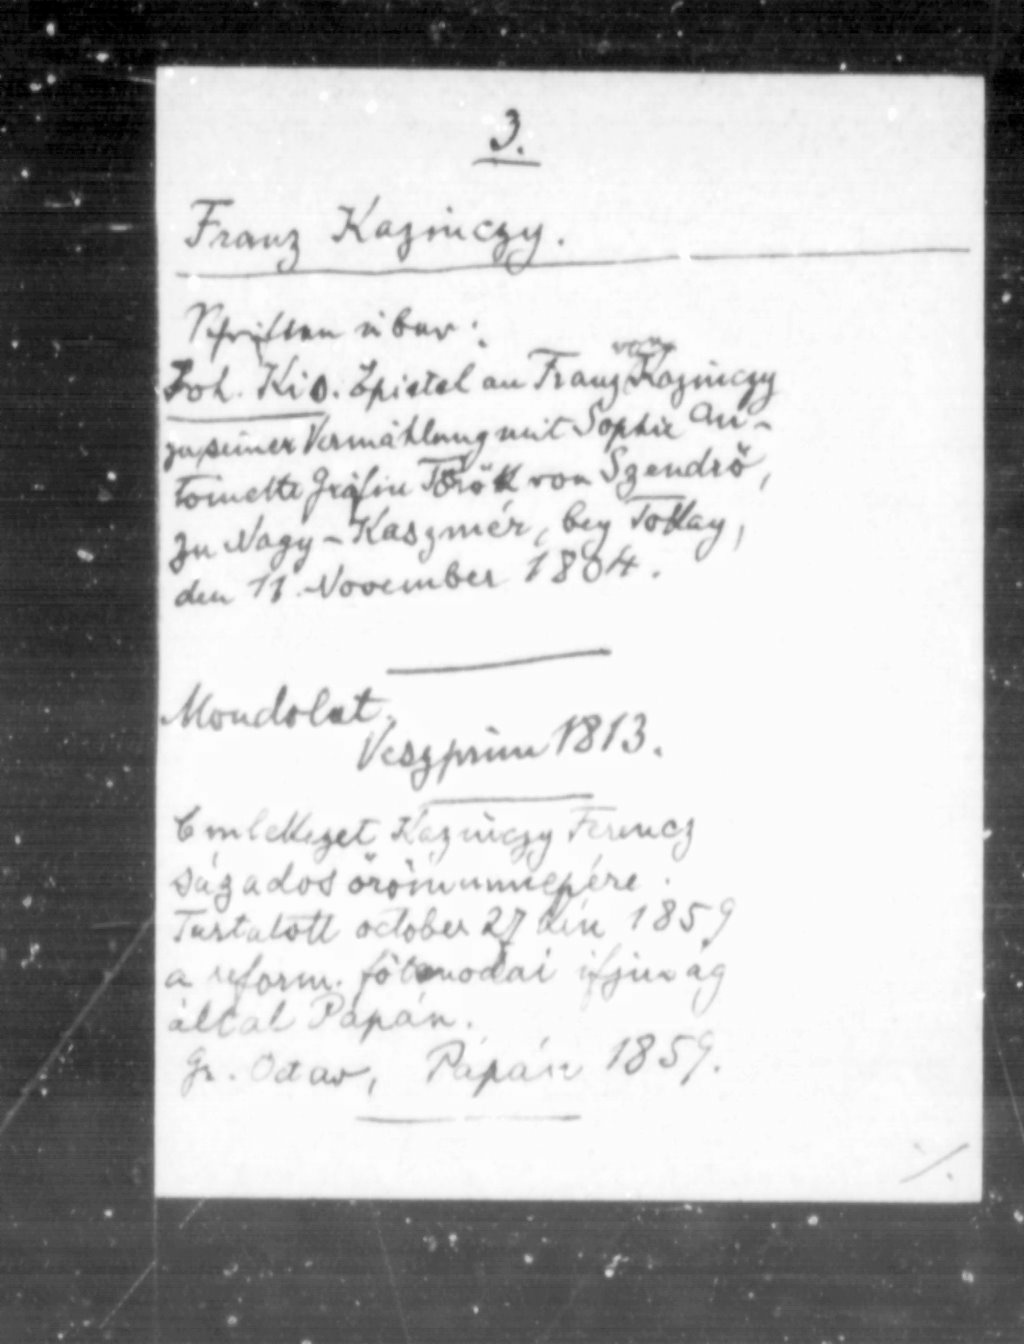 3.
Franz Kazinczy.
Schriften über:
Joh. Kis. Epistel an Franz von Kazinczy
zu seiner Vermählung mit Sophie An-
toinette Gräfin Török von Szendrö,
zu Nagy-Kaszmér, bey Tokay,
den 11. November 1804.
Mondolat.
Veszprim 1813.
Emlekezet Kazinczy Ferencz
százados örömünnepére.
Tartatott october 27 kén 1859
a reform. főtanodai ifjuság
által Pápán.
Gr. Octav, Pápán 1859.
./.